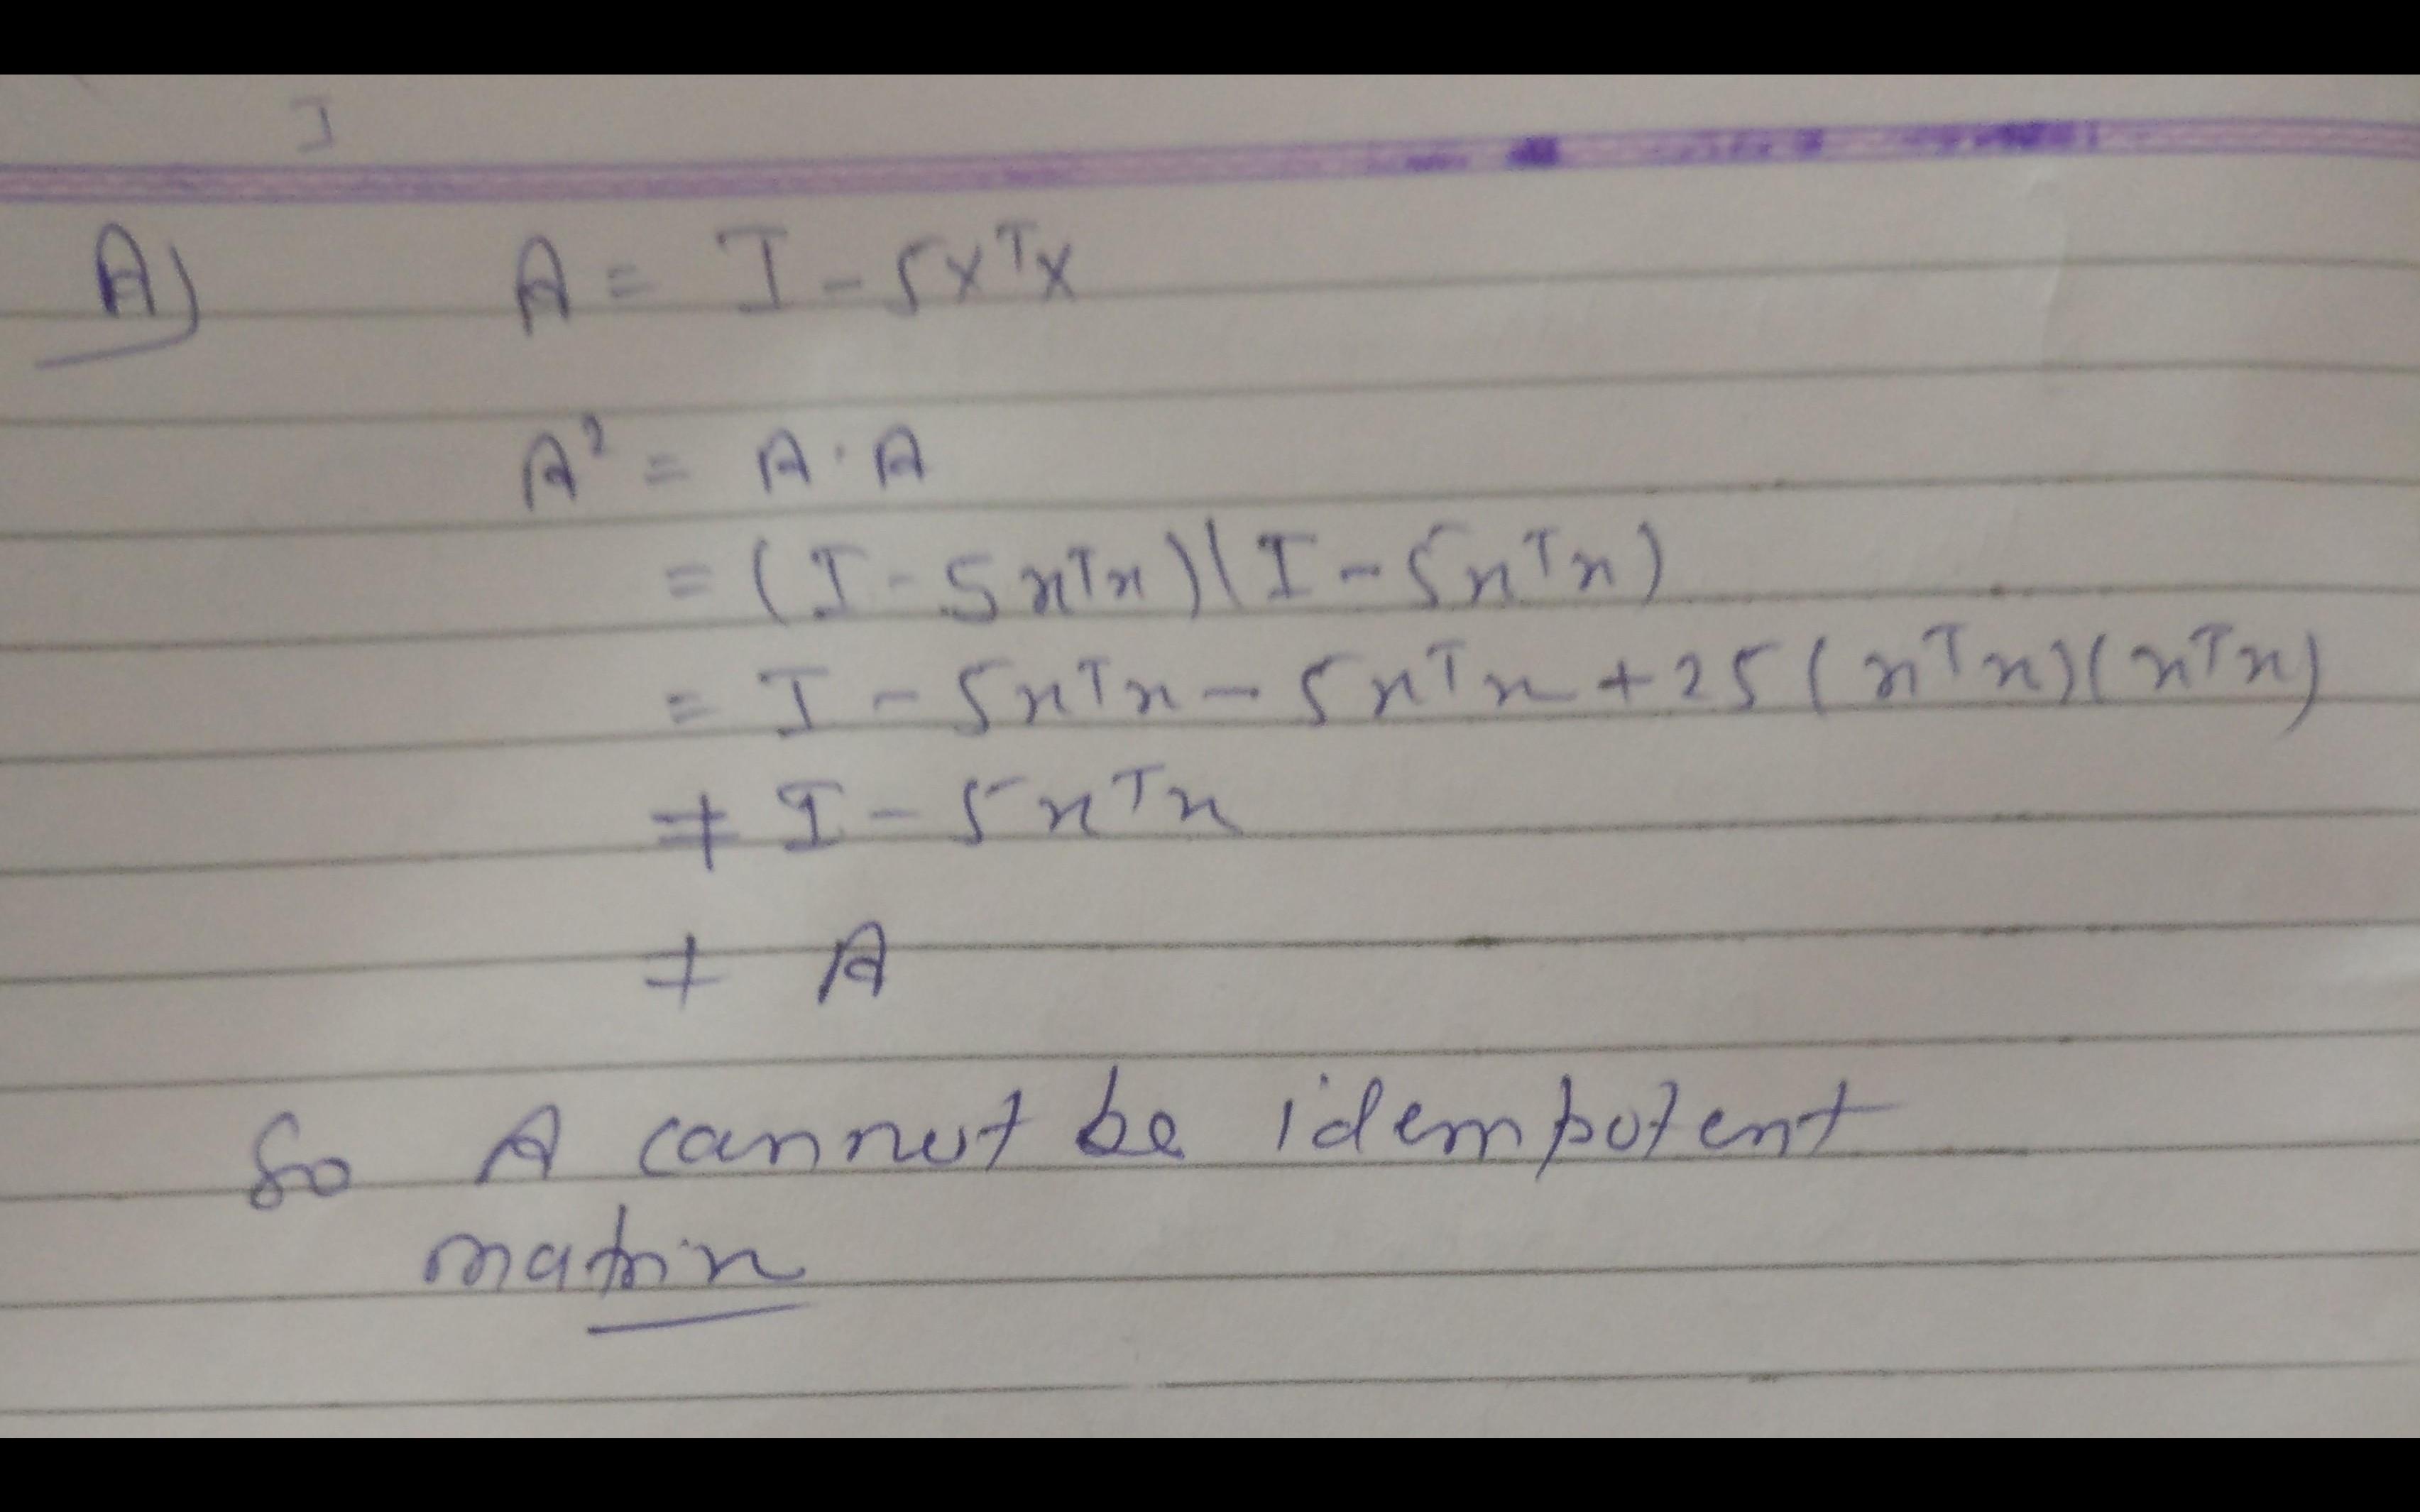 A) A = I - 5X^T X
A² = A · A
= (I - 5x^T x)(I - 5x^T x)
= I - 5x^T x - 5x^T x + 25(x^T x)(x^T x)
≠ I - 5x^T x
≠ A
So A cannot be idempotent
matrix